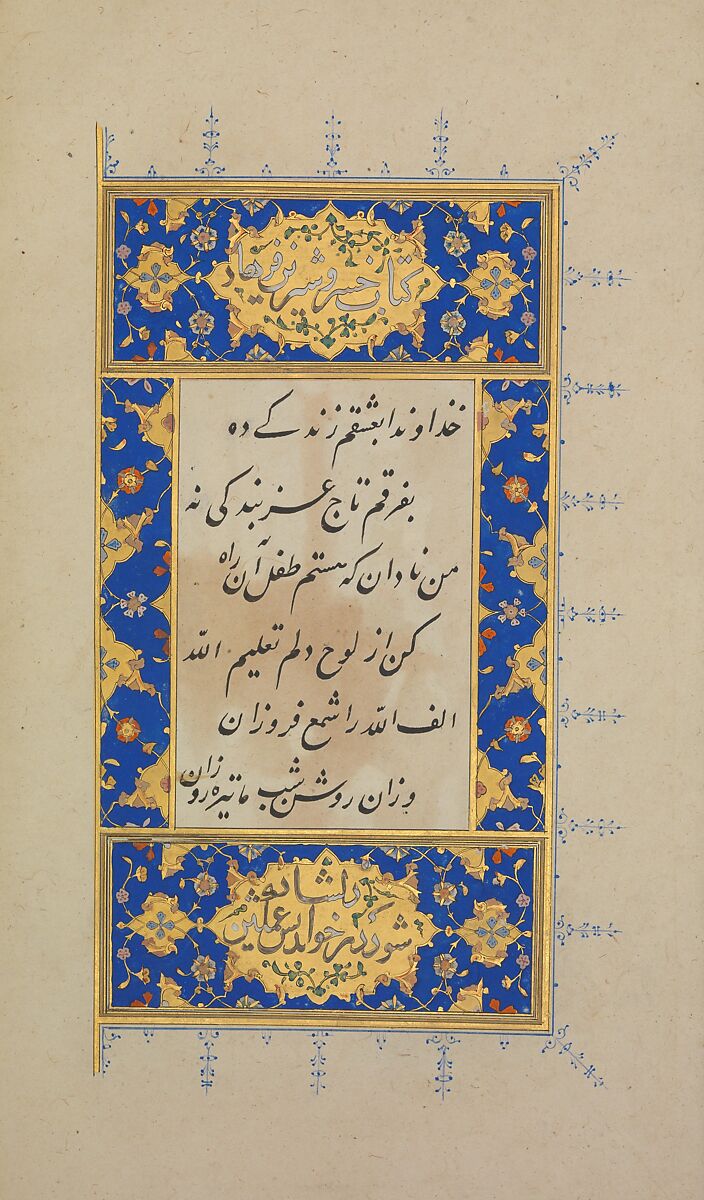 کتاب خسرو شیرین فرهاد
خداوندا بعشقم زندگی ده
بفرقم تاج عز بندگی نه
من نادان که هستم طفل آن راه
کن از لوح دلم تعلیم الله
الف الله را شمع فروزان
وزان روشن شب ما تیره روزان
شود گر خواندنش